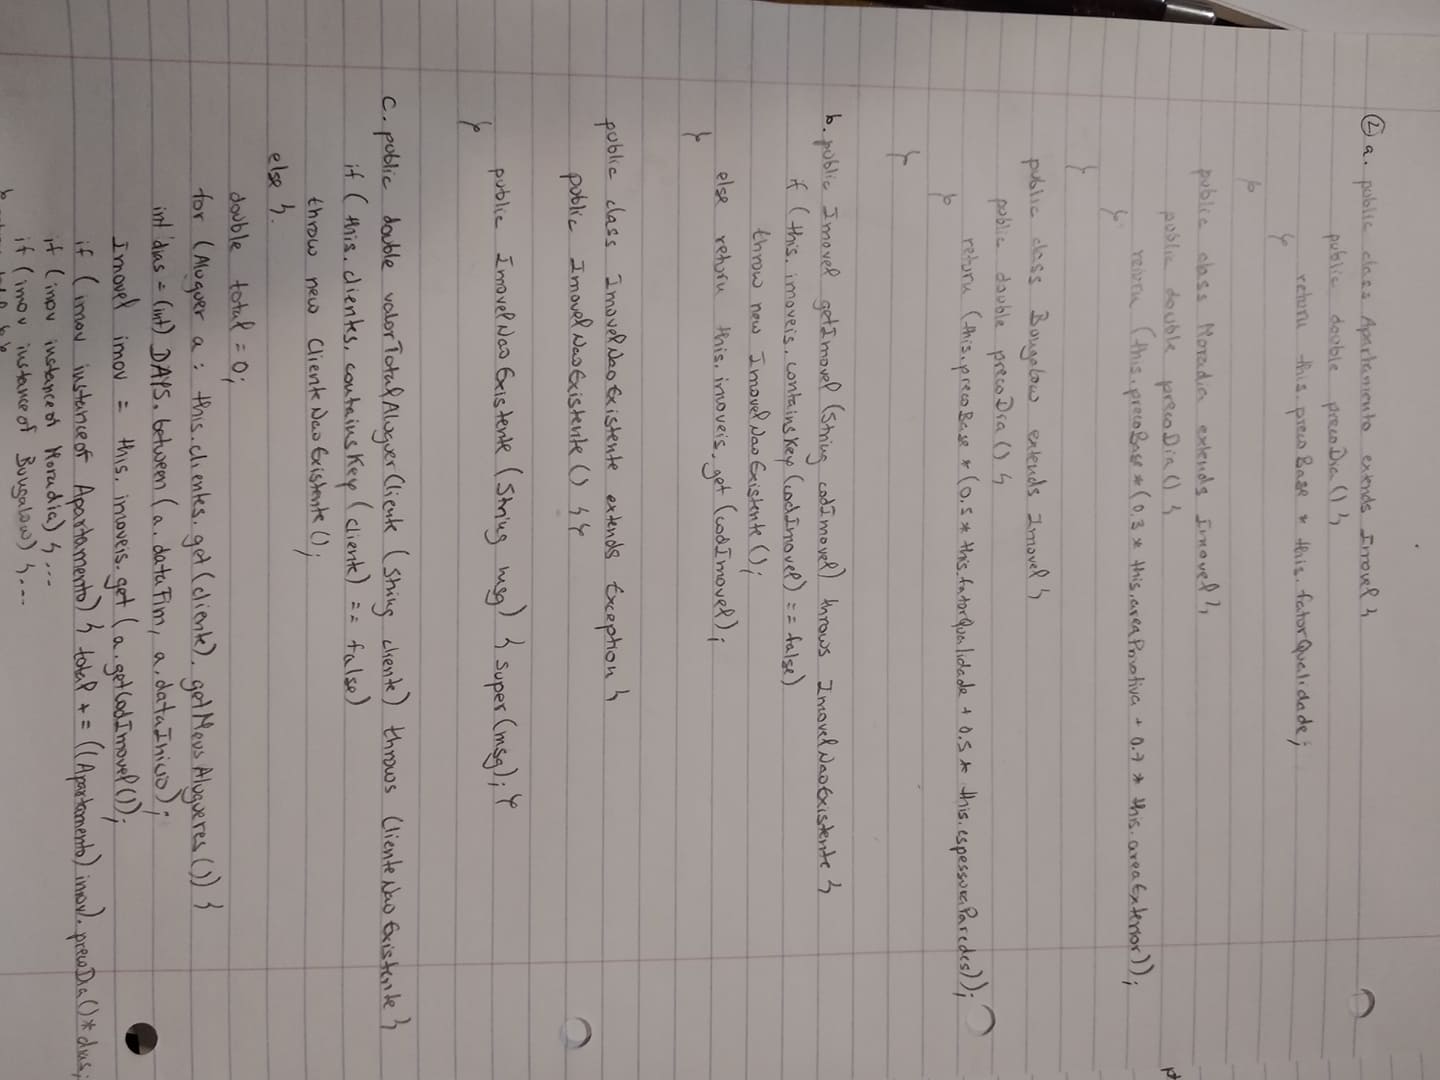 ② a. public class Apartamento extends Imovel {
public double precoDia () {
return this.precoBase * this.fatorQualidade;
}
}
public class Moradia extends Imovel {
public double precoDia () {
return (this.precoBase * (0.3 * this.areaPrivativa + 0.7 * this.areaExterior));
}
}
public class Bougalow extends Imovel {
public double precoDia () {
return (this.precoBase * (0.5 * this.fatorQualidade + 0.5 * this.espessuraParedes));
}
}
b. public Imovel getImovel (String codImovel) throws ImovelNaoExistente {
if (this.imoveis.containsKey (codImovel) == false)
throw new ImovelNaoExistente ();
else return this.imoveis.get (codImovel);
}
public class ImovelNaoExistente extends Exception {
public ImovelNaoExistente () { }
public ImovelNaoExistente (String msg) { super (msg); }
}
c. public double valorTotalAluguerCliente (String cliente) throws ClienteNaoExistente {
if (this.clientes.containsKey (cliente) == false)
throw new ClienteNaoExistente ();
else {
double total = 0;
for (Aluguer a : this.clientes.get (cliente).getMeusAlugueres ()) {
int dias = (int) DAYS.between (a.dataFim, a.dataInicio);
Imovel imov = this.imoveis.get (a.getCodImovel ());
if (imov instanceof Apartamento) { total += ((Apartamento) imov).precoDia () * dias;
if (imov instanceof Moradia) { ...
if (imov instanceof Bougalow) { ...